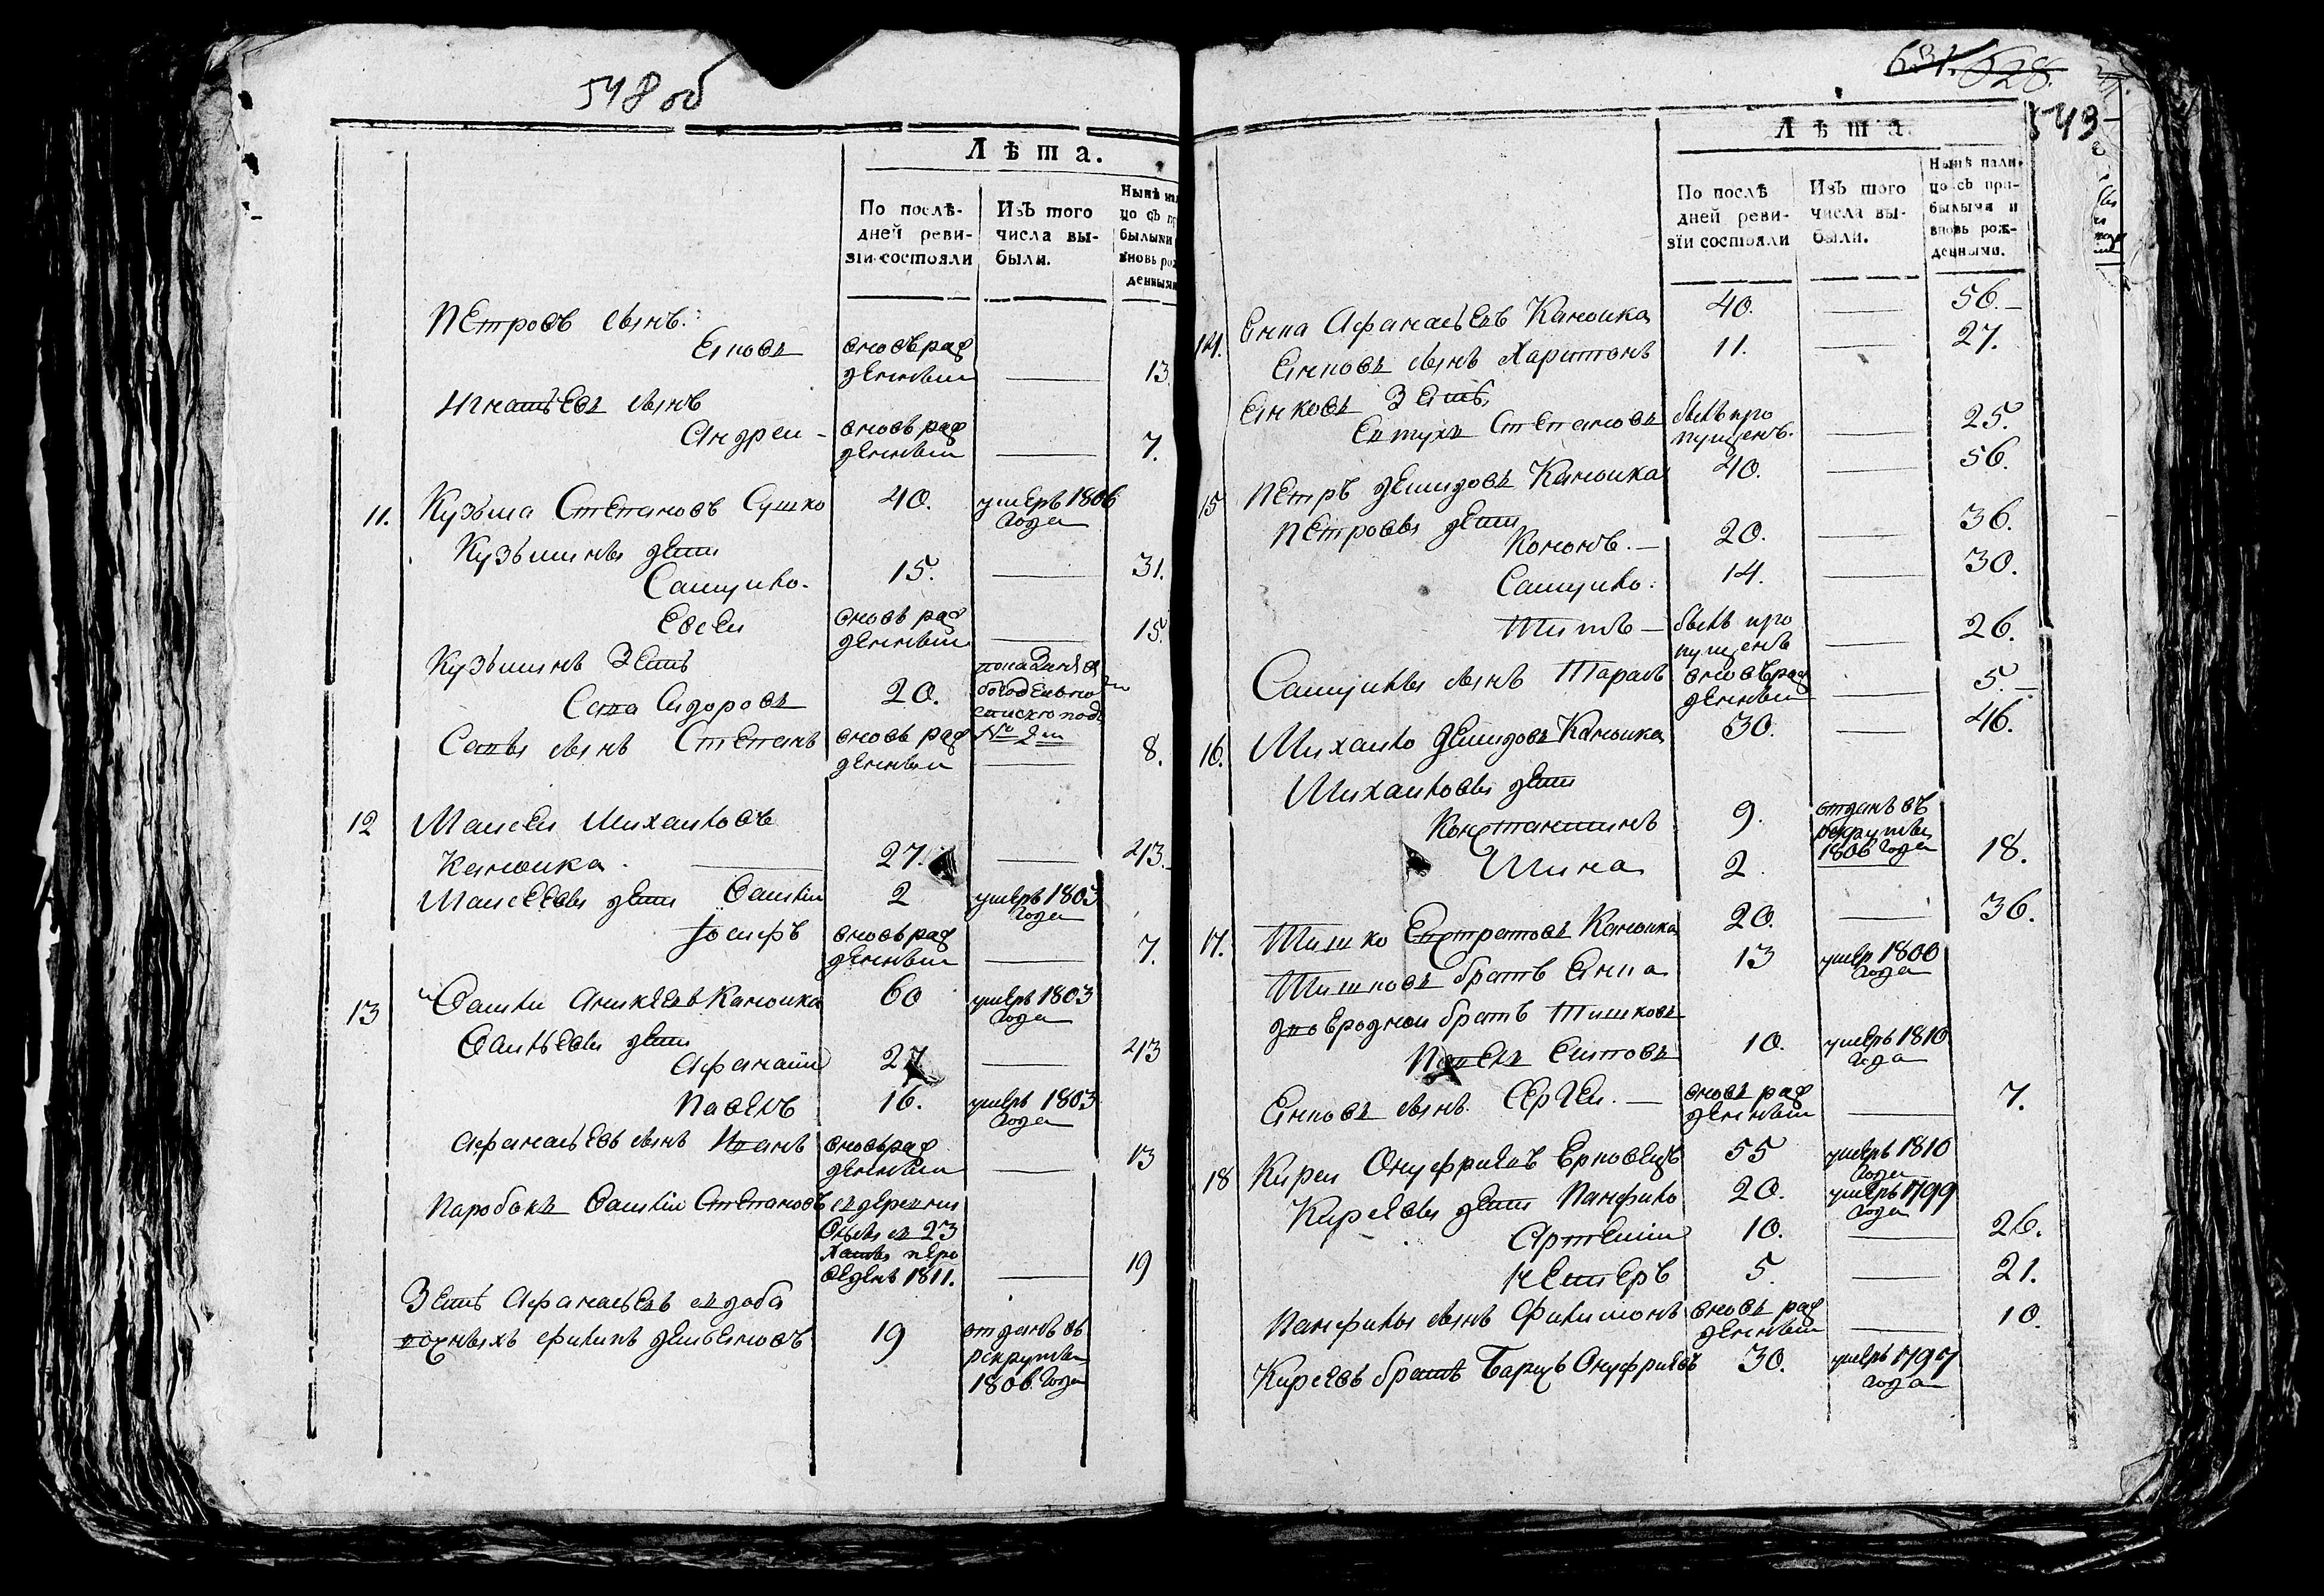 548 об
Лѣта.
По послѣ-
дней реви-
зіи состояли
Изъ того
числа вы-
были.
Нынѣ на
цо съ п
былыми
вновь ро
денными
Петровъ сынъ.
Яковъ вновь раж
денный — 13.
Игнатьевъ сынъ
Андреи - вновь раж
денный — 7.
11. Кузьма Степановъ Сушко 40. умеръ 1806
года
Кузьмины дети
Самуило. 15. — 31.
Евсеи вновь раж
денный — 15.
Кузьминъ Зеть
Сава Сидоровъ 20.
списке подъ
№ 2м
Савы сынъ Степанъ вновь раж
денный — 8.
12 Маисеи Михаиловъ
Канюика. 27. — 43.
Маисеевы дети Василіи 2 умеръ 1803
года
Іосифъ вновь раж
денный — 7.
13 Василіи Аникеевъ Канюика 60 умеръ 1803
года
Васильевы дети
Афанасіи 27 — 43
Павелъ 16. умеръ 1803
года
Афанасьевъ сынъ Иванъ вновь раж
денный — 13
Паробакъ Василіи Степановъ въ деревни
въ 23
Хаты пере
веденъ 1811. — 19
Зеть Афанасьевъ
Филипъ Демьяновъ 19 отданъ въ
рекруты
1806. года
631. 628.
549
Лѣта.
По послѣ
дней реви-
зіи состояли
Изъ того
числа вы-
были.
Нынѣ нали-
цо съ при-
былыми и
вновь рож-
денными.
14. Янка Афанасьевъ Канюика 40. — 56.
Янковъ сынъ Харитонъ 11. — 27.
Янковъ Зеть
Евтухъ Степановъ былъ про
пущенъ. — 25.
15 Петръ Демидовъ Канюика 40. — 56.
Петровы дети
Кононъ. — 20. — 36.
Самуило. 14. — 30.
Титъ — былъ про
пущенъ — 26.
Самуилы сынъ Тарасъ вновь раж
денный — 5.
16. Михаило Демидовъ Канюика 30. — 46.
Михаиловы дети
Константинъ 9. отданъ въ
рекруты
1806 года
Мина 2. — 18.
17. Тишко Евстратовъ Канюика 20. — 36.
Тишковъ братъ Янка 13 умеръ 1800
года
двоеродной братъ Тишковъ
Павелъ Титовъ 10. умеръ 1810
года
Янковъ сынъ Сергеи. — вновь раж
денный — 7.
18 Киреи Онуфриевъ Ярковецъ 55 умеръ 1810
года
Киреевы дети Панфило 20. умеръ 1799
года
Артеміи 10. — 26.
Нестеръ 5. — 21.
Панфилы сынъ Филимонъ вновь раж
денный — 10.
Киреевъ братъ Барисъ Онуфриевъ 30. умеръ 1797
года